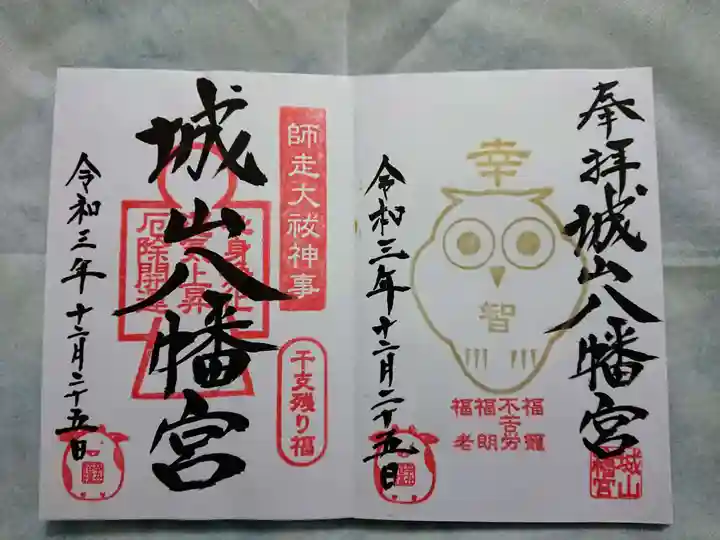 奉拝
城山八幡宮
幸
智
福寵
不苦労
福朗
福老
城山
八幡宮
令和三年十二月二十五日
師走大祓神事
干支残り福
城山八幡宮
厄除開運
令和三年十二月二十五日